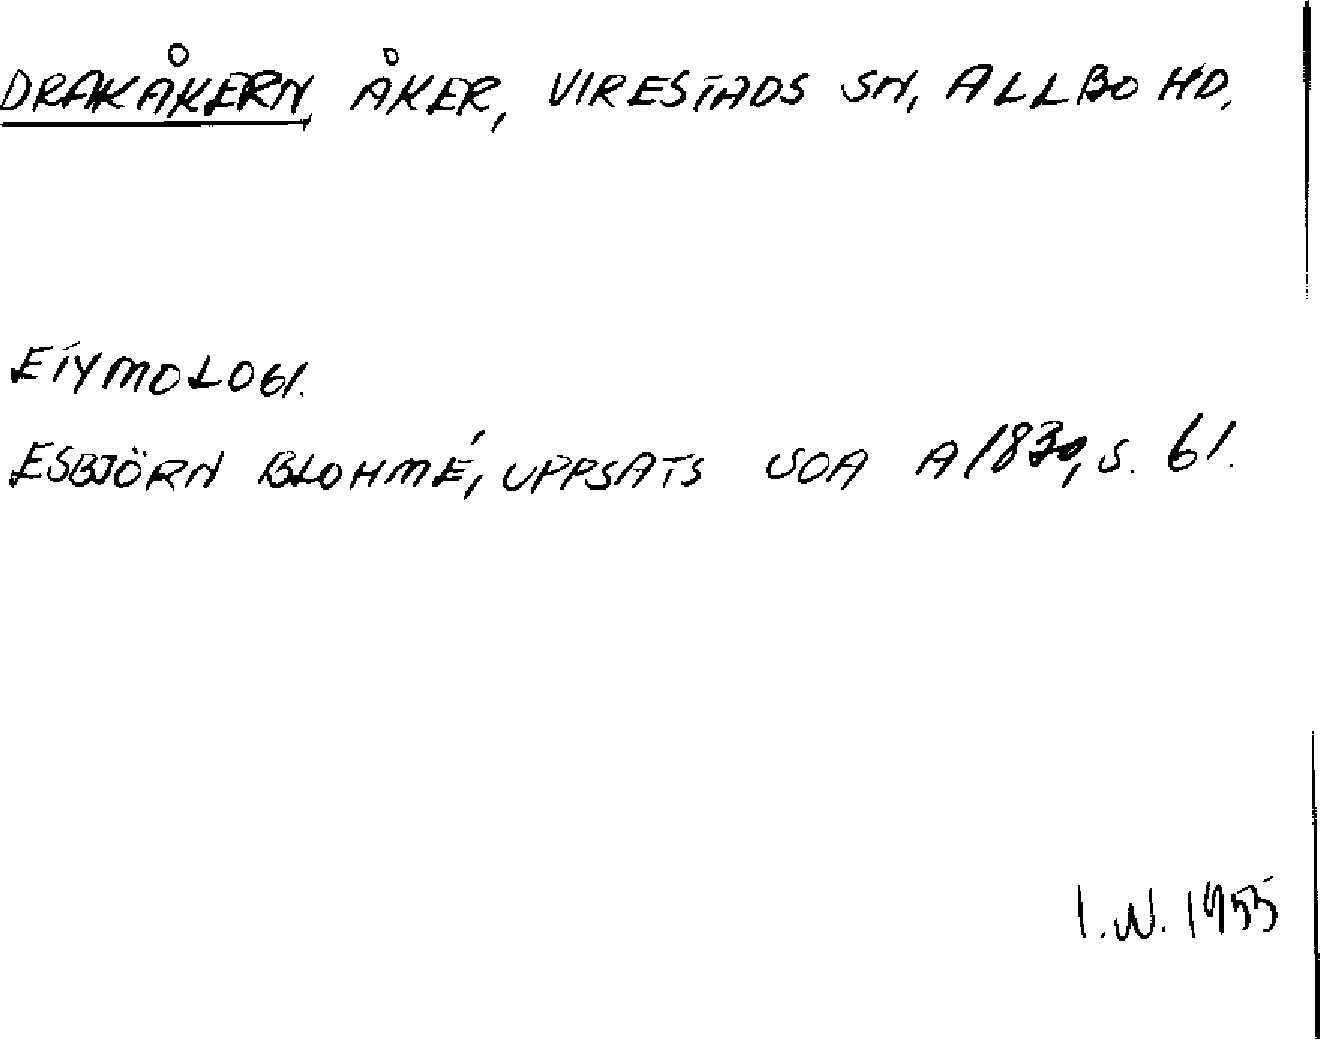 DRAKÅKERN, ÅKER, VIRESTADS SN, ALLBO HD.
ETYMOLOGI.
ESBJÖRN BLOHMÉ, UPPSATS SOA A/830, S. 61.
I.W. 1955